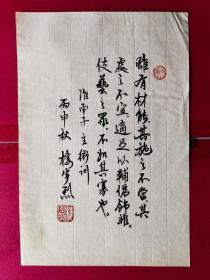 雖有材能其施之不當其
處之不宜適足以輔偽飾非
伎藝之眾不如其寡也
淮南子主術訓
丙申秋